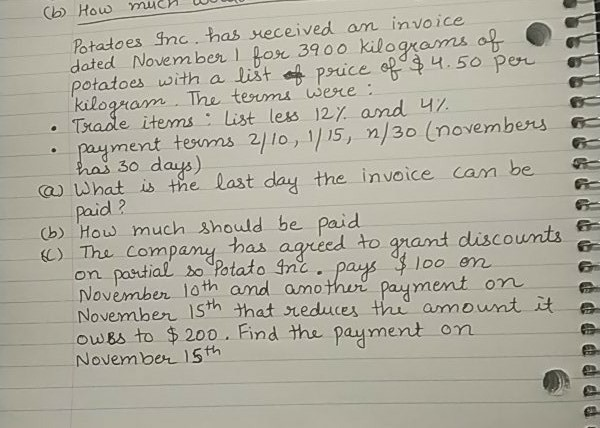 (b) How much
Potatoes Inc. has received an invoice
dated November 1 for 3900 kilograms of
potatoes with a list price of $4.50 per
kilogram. The terms were :
• Trade items : List less 12% and 4%.
• payment terms 2/10, 1/15, n/30 (novembers
has 30 days)
(a) What is the last day the invoice can be
paid?
(b) How much should be paid
(c) The company has agreed to grant discounts
on partial so Potato Inc. pays $100 on
November 10th and another payment on
November 15th that reduces the amount it
owes to $200. Find the payment on
November 15th